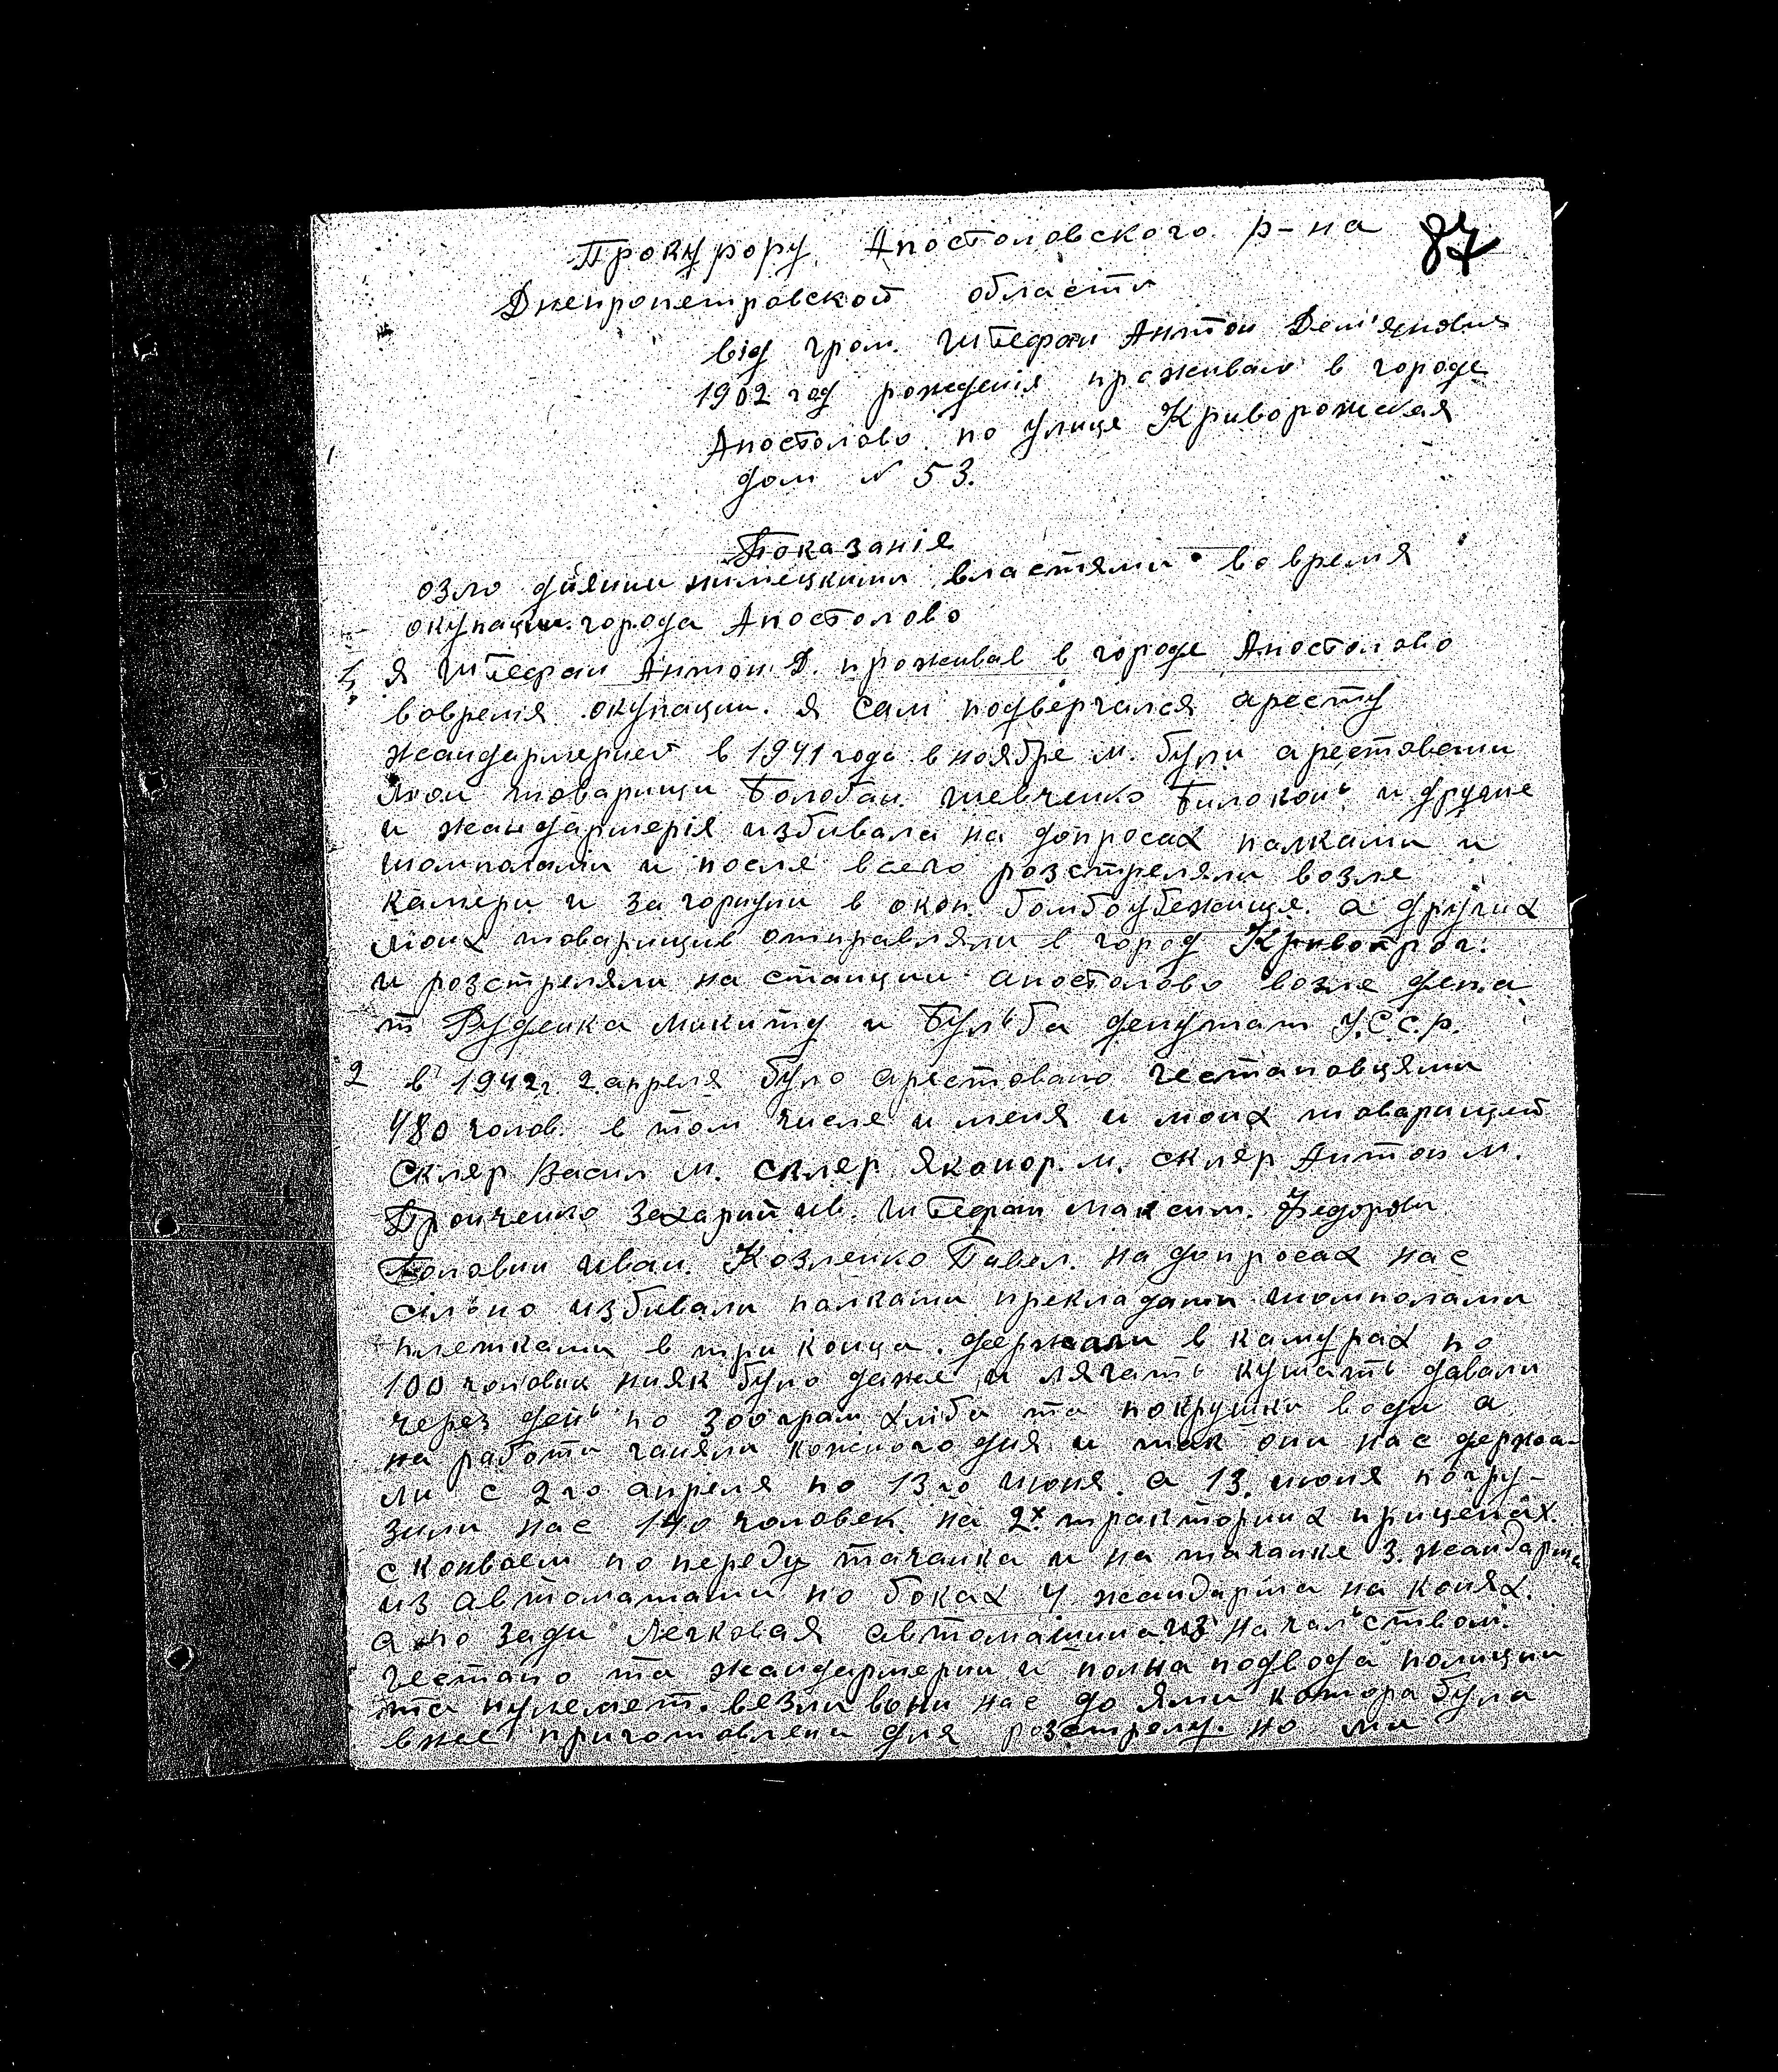 Прокурору Апостоловского р-на 87
Днепропетровской области
від гром. Штефан Антон Дем'янович
1902 год рожденія проживаю в городе
Апостолово по улице Криворожская
дом № 53.
Показанія
озло диянии нимецкими властями во время
окупации города Апостолово
1, я Штефан Антон Д. проживав в городе Апостолово
вовремя окупации. я сам подвергался аресту
жандармерией в 1941 года в ноябре м. були арестовани
мои товарищи Болобан. Шевченко Билоконь и другие
и жандармерія избивала на допросах палками и
шомполами и после всего розстреляли возле
камери и загорнули в окоп. бомбоубежище. а других
моих товарищив отправляли в город Кривойрог.
и розстреляли на станции апостолово возле депа
т Руденка Микиту и Бульба депутат У.С.С.р.
2 в 1942г 2 апреля було арестовано гестаповцями
480 чолов. в том числе и меня и моих товарищей
Скляр Васил М. скляр Яконор. м. скляр Антон м.
Пронченко Захарий ив. Штефан Максим. Федоров
Головин иван. Козленко Павел. на допросах нас
сільно избивали палками прекладами шомполами
плетками в три конца. держали в камурах по
100 чоловик нияк було даже и лягать кушать давали
через день по 300 грам хліба та покрушки води а
на работи ганяли кожного дня и так они нас держа-
ли с 2го апреля по 13го июня. а 13. июня погру-
зили нас 140 человек. на 2х тракторних прицепах.
с конвоем по переду тачанка и на тачанке 3. жандарма
из автоматами по боках 4 жандарма на конях.
а по зади легковая автомашина из начальством.
гестапо та жандармерии и полна подвода полиции
та пулемет. везли вони нас до ями котора була
вжее приготовлена для розстрелу. но ми